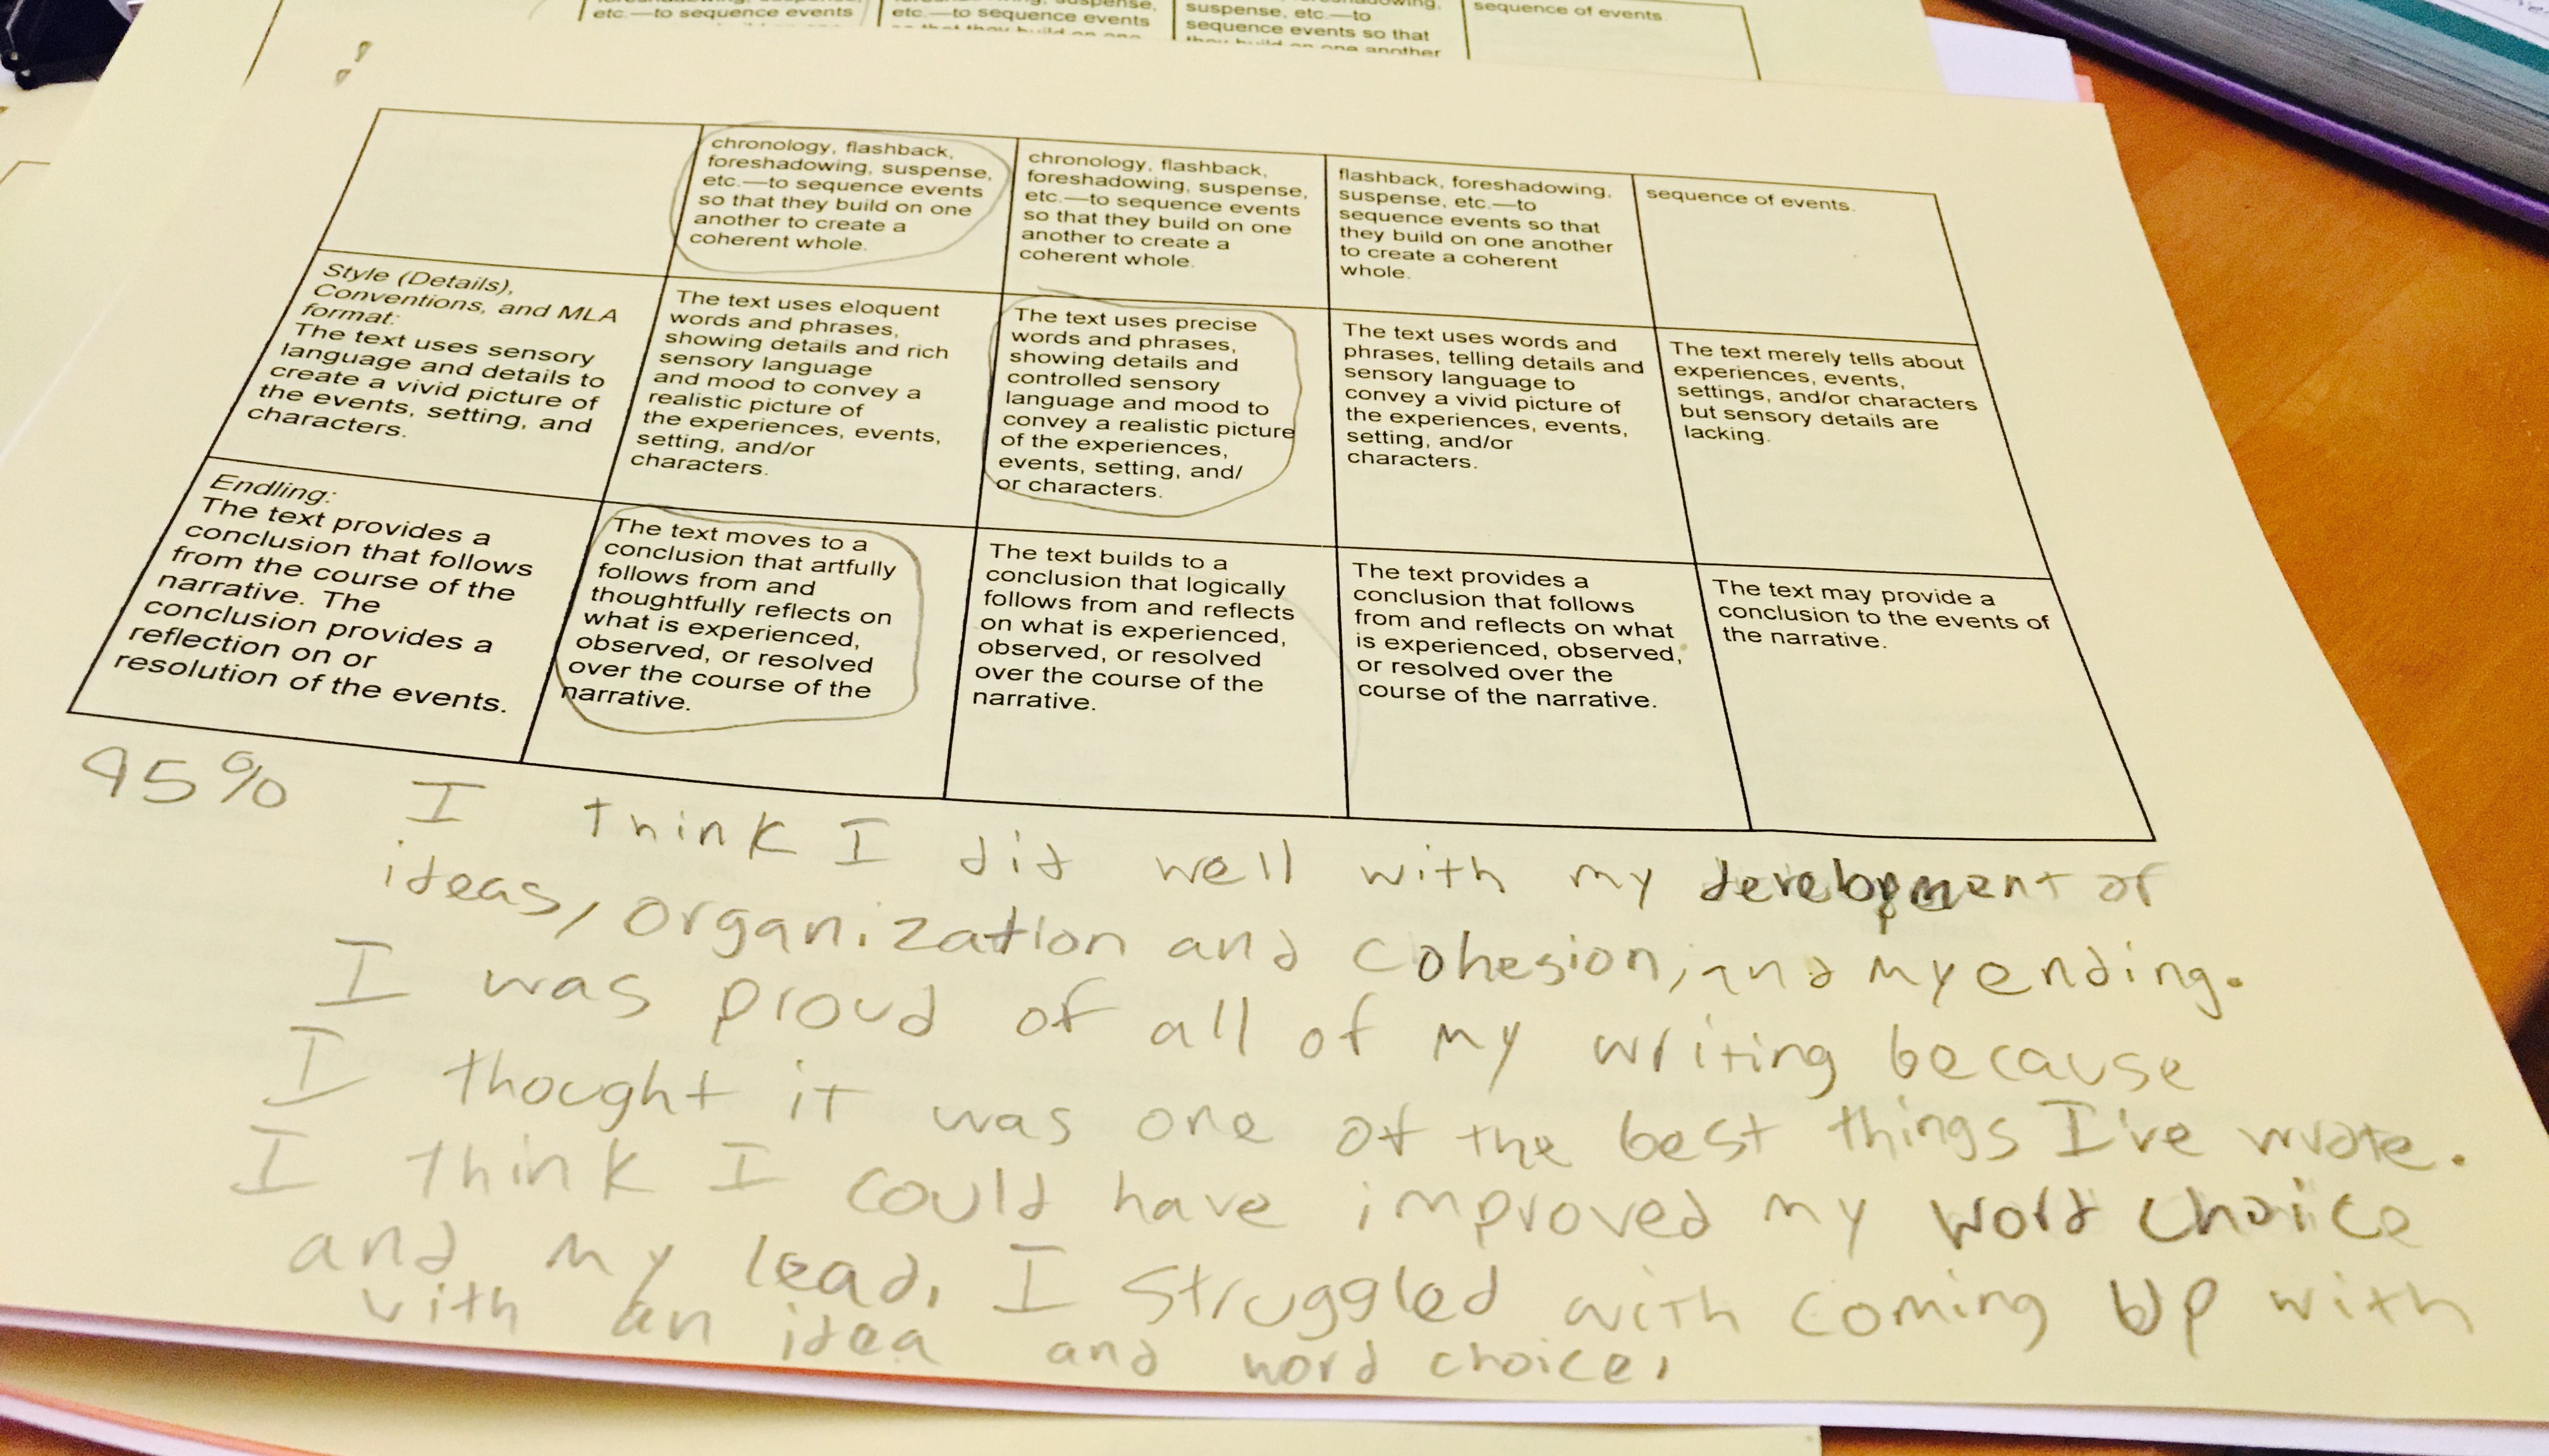 etc.—to sequence events
etc.—to sequence events
suspense, etc.—to
sequence events so that
they build on one another
sequence of events.
chronology, flashback,
foreshadowing, suspense,
etc.—to sequence events
so that they build on one
another to create a
coherent whole.
chronology, flashback,
foreshadowing, suspense,
etc.—to sequence events
so that they build on one
another to create a
coherent whole.
flashback, foreshadowing,
suspense, etc.—to
sequence events so that
they build on one another
to create a coherent
whole.
sequence of events.
Style (Details),
Conventions, and MLA
format:
The text uses sensory
language and details to
create a vivid picture of
the events, setting, and
characters.
The text uses eloquent
words and phrases,
showing details and rich
sensory language
and mood to convey a
realistic picture of
the experiences, events,
setting, and/or
characters.
The text uses precise
words and phrases,
showing details and
controlled sensory
language and mood to
convey a realistic picture
of the experiences,
events, setting, and/
or characters.
The text uses words and
phrases, telling details and
sensory language to
convey a vivid picture of
the experiences, events,
setting, and/or
characters.
The text merely tells about
experiences, events,
settings, and/or characters
but sensory details are
lacking.
Endling:
The text provides a
conclusion that follows
from the course of the
narrative. The
conclusion provides a
reflection on or
resolution of the events.
The text moves to a
conclusion that artfully
follows from and
thoughtfully reflects on
what is experienced,
observed, or resolved
over the course of the
narrative.
The text builds to a
conclusion that logically
follows from and reflects
on what is experienced,
observed, or resolved
over the course of the
narrative.
The text provides a
conclusion that follows
from and reflects on what
is experienced, observed,
or resolved over the
course of the narrative.
The text may provide a
conclusion to the events of
the narrative.
95% I think I did well with my development of
ideas, organization and cohesion, and my ending.
I was proud of all of my writing because
I thought it was one of the best things I've wrote.
I think I could have improved my word choice
and my lead. I struggled with coming up with
with an idea and word choice.